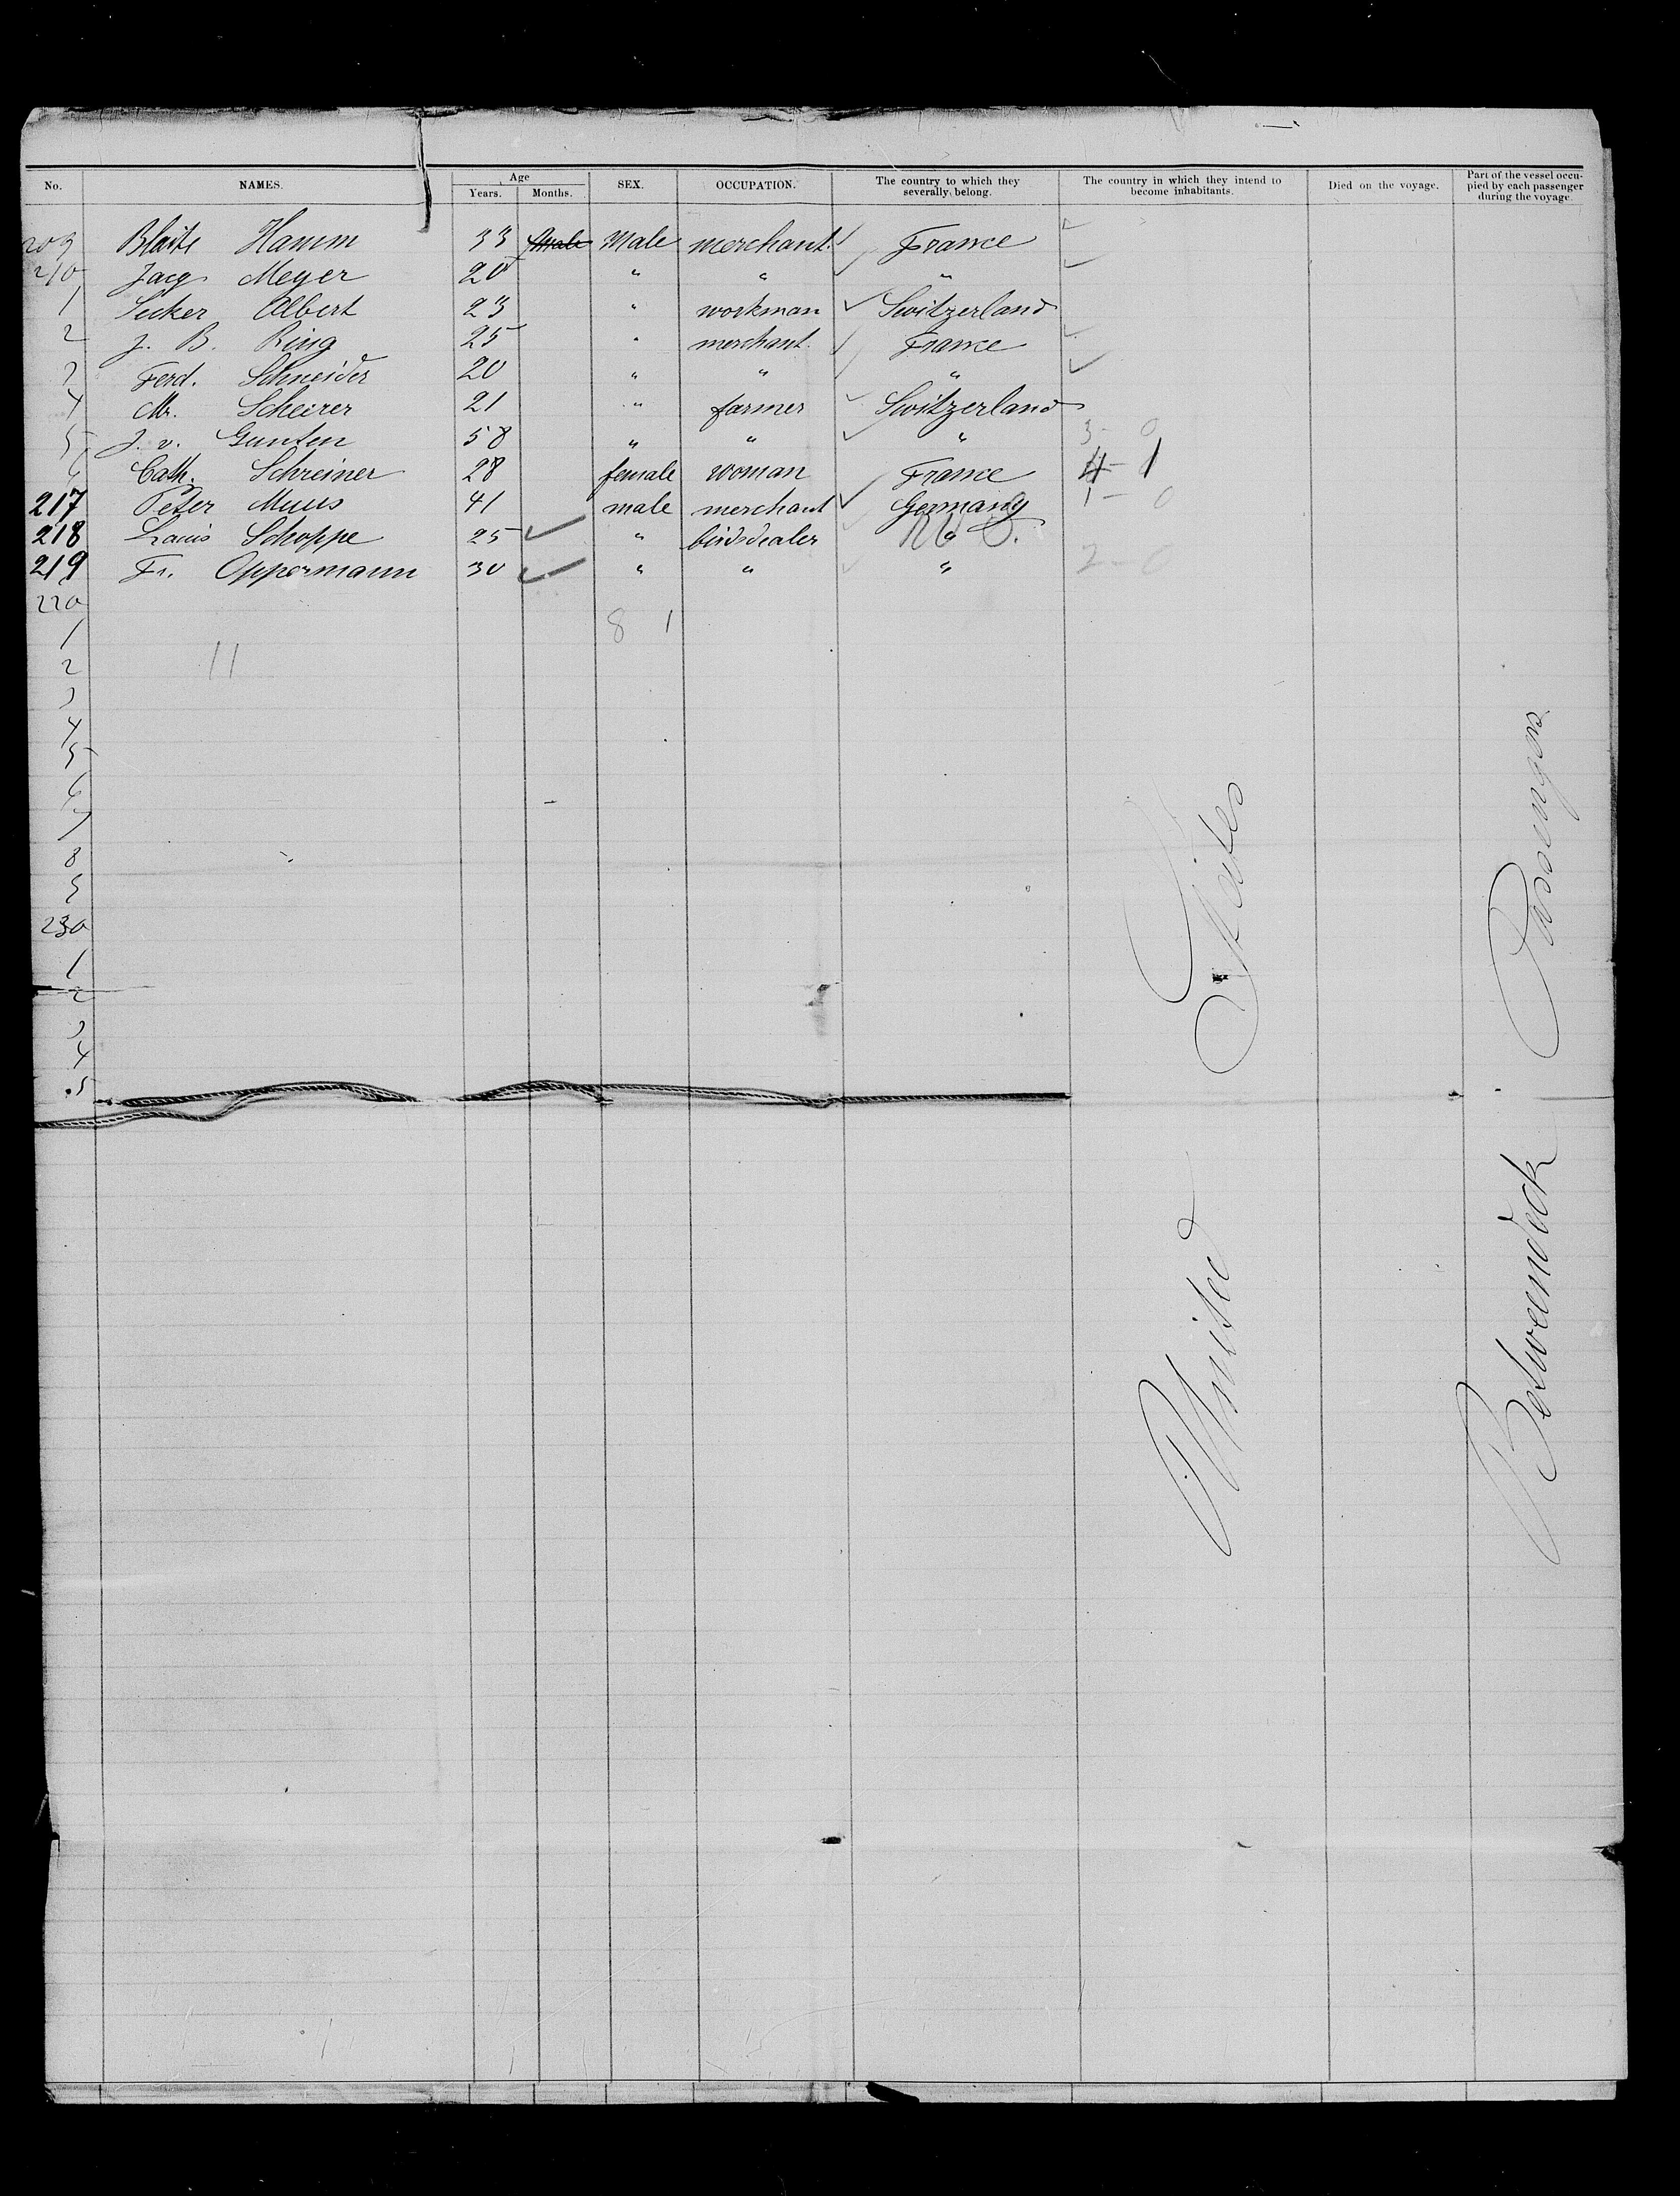 No. NAMES. Age Years. Months. SEX. OCCUPATION. The country to which they severally belong. The country in which they intend to become inhabitants. Died on the voyage. Part of the vessel occupied by each passenger during the voyage.
209 Blaise Hamm 33 Male Male merchant. France
210 Jacq. Meyer 20 " " "
1 Secker Albert 23 " workman Switzerland
2 J. B. Ring 25 " merchant. France
3 Ferd. Schneider 20 " " "
4 Mr. Scheirer 21 " farmer Switzerland
5 J. v. Gunten 58 " " " 3 - 0
6 Cath. Schreiner 28 female woman France 4 - 1
217 Peter Muus 41 male merchant Germany 1 - 0
218 Louis Schoppe 25 " birdsdealer "
219 Fr. Oppermann 30 " " " 2 - 0
220
8 1
1
11
2
3
4
5
6
7
8
9
230
1
2
3
4
5
United States
Betweendeck Passengers